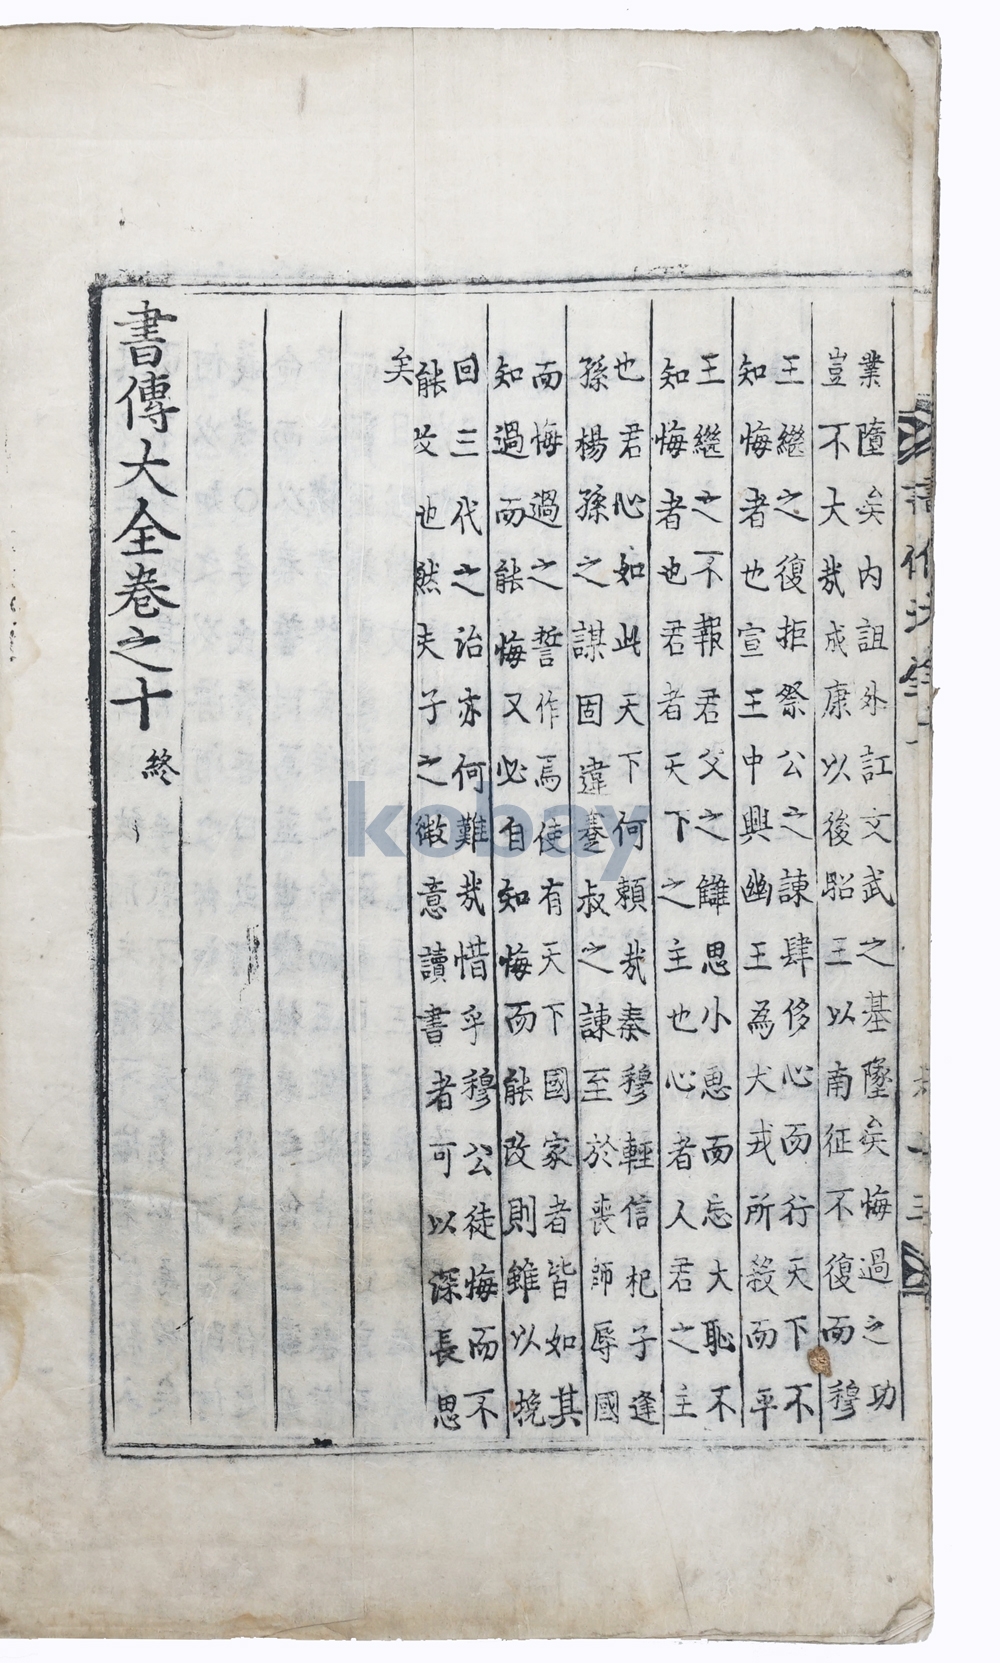 業墮矣内詛外訌文武之基墜矣悔過之功
豈不大哉成康以後昭王以南征不復而穆
王繼之復拒祭公之諫肆侈心而行天下不
知悔者也宣王中興幽王為犬戎所殺而平
王繼之不報君父之讎思小惠而忘大恥不
知悔者也君者天下之主也心者人君之主
也君心如此天下何賴哉秦穆輕信杞子逢
孫楊孫之謀固違蹇叔之諫至於喪師辱國
而悔過之誓作焉使有天下國家者皆如其
知過而能悔又必自知悔而能改則雖以挽
回三代之治亦何難哉惜乎穆公徒悔而不
能改也然夫子之微意讀書者可以深長思
矣
書傳大全卷之十 終
kobay